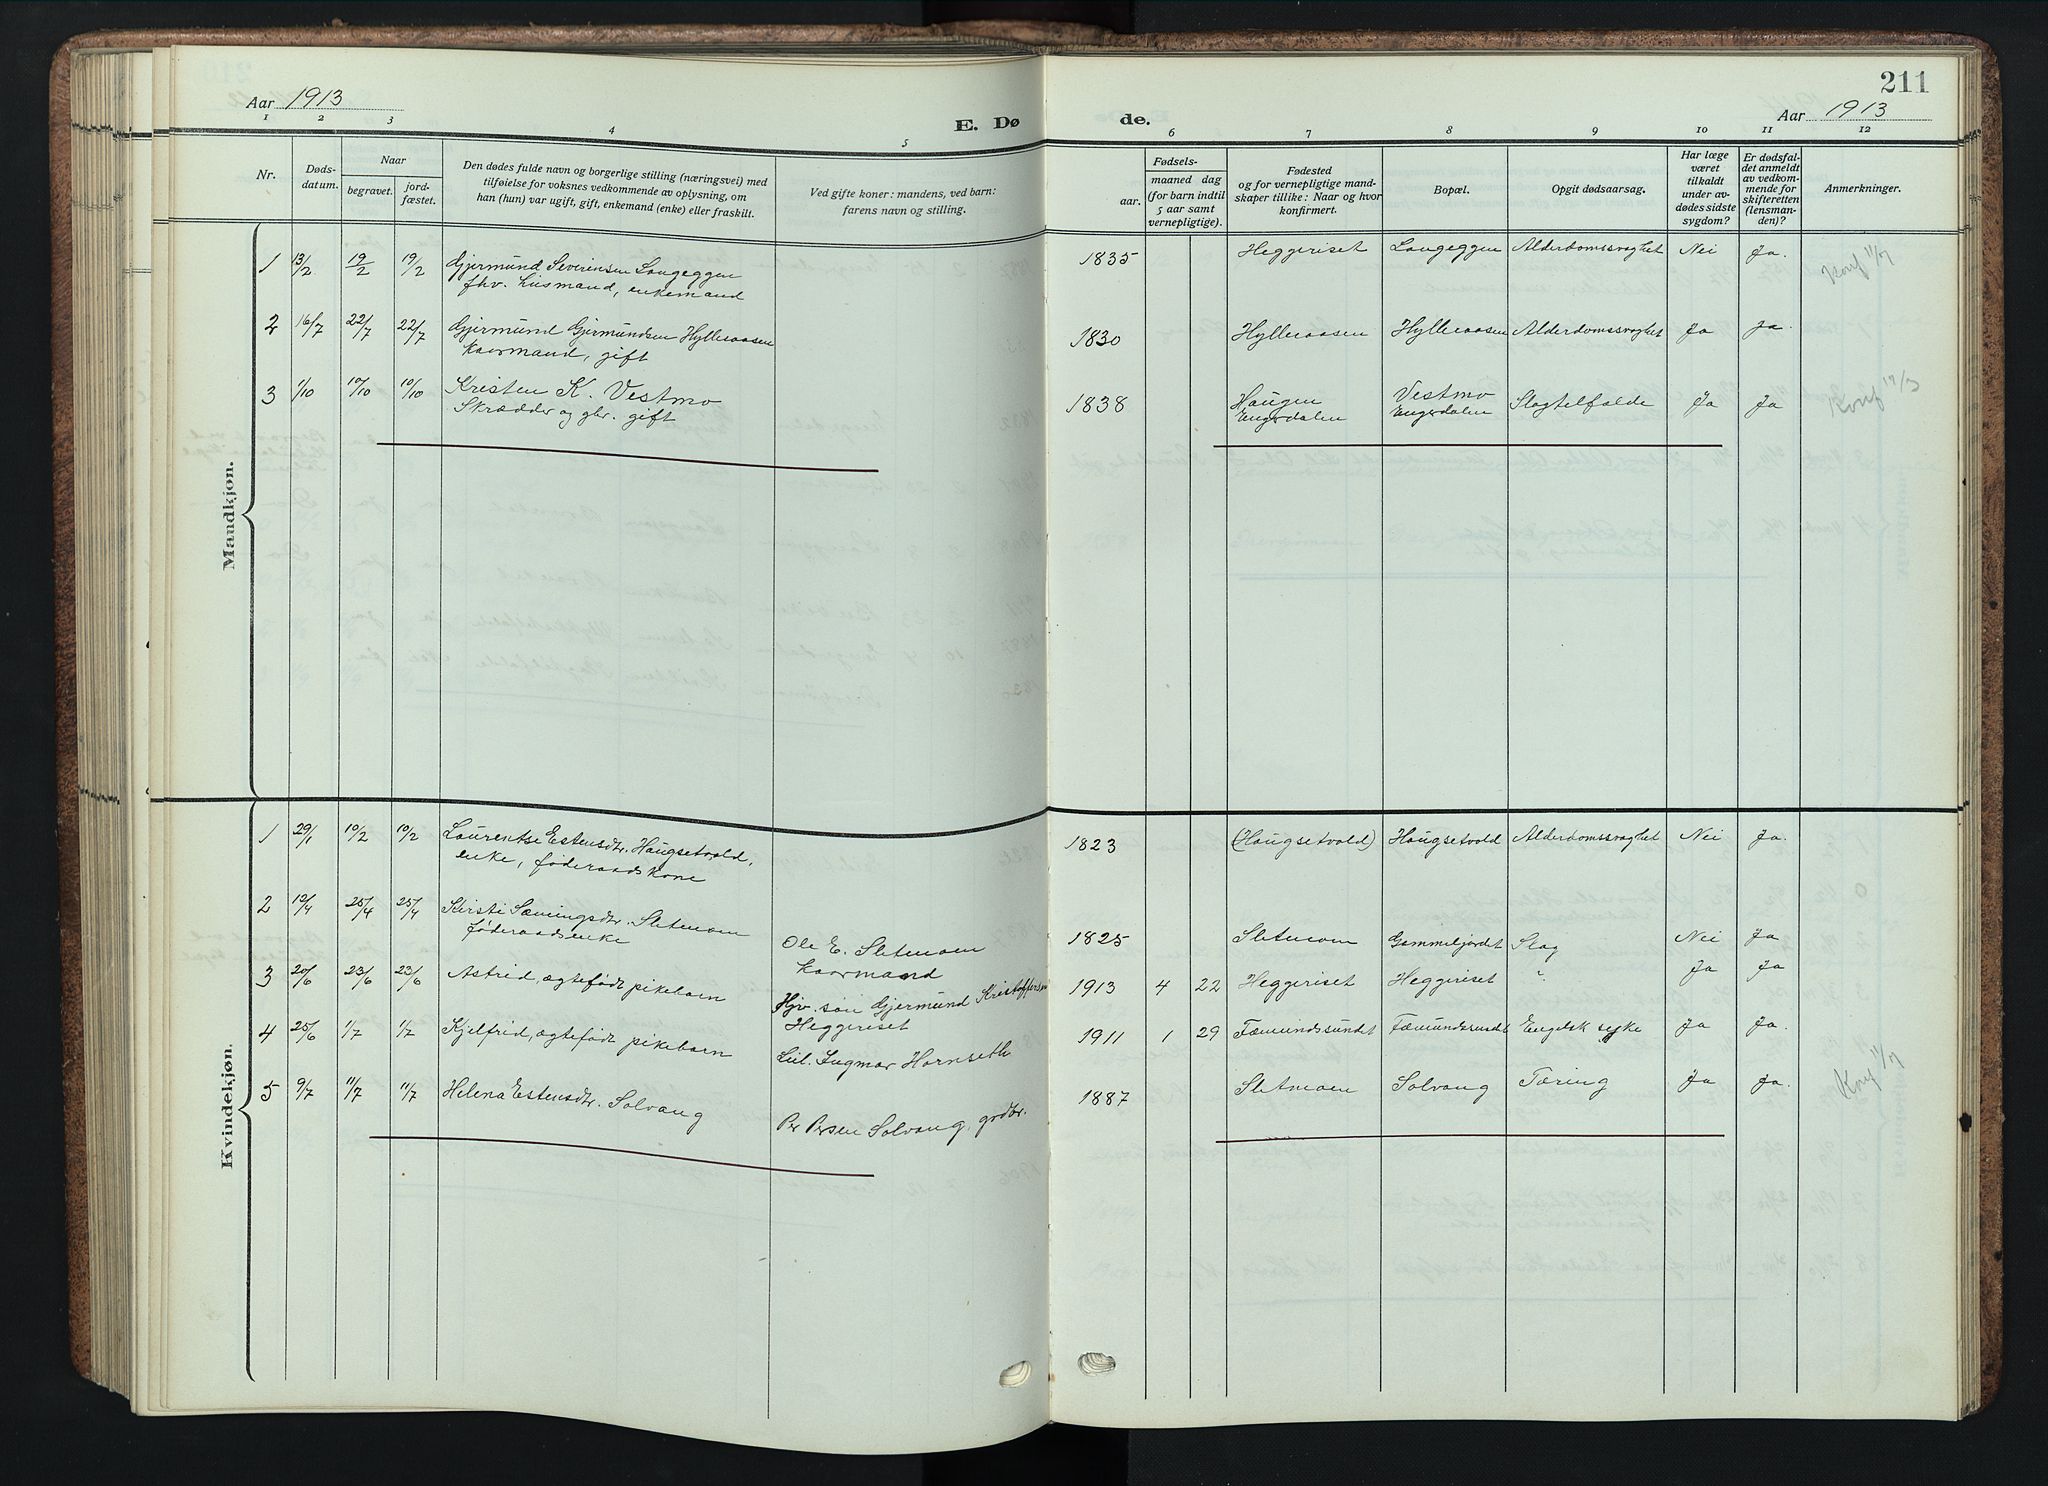 Aar 1913
E. Dø
1 2 3 4 5
Nr.
Døds-
datum.
Naar
begravet.
jord-
fæstet.
Den dødes fulde navn og borgerlige stilling (næringsvei) med
tilføielse for voksnes vedkommende av oplysning, om
han (hun) var ugift, gift, enkemand (enke) eller fraskilt.
Ved gifte koner: mandens, ved barn:
farens navn og stilling.
Mandkjøn.
1 13/2 19/2 19/2 Gjermund Severinsen Langeggen
fhv. husmand, enkemand
2 16/7 22/7 22/7 Gjermund Gjermundsen Hylleraasen
Kaarmand, gift
3 1/10 10/10 10/10 Kristen K. Vestmo
Skrædder og gbr. gift
Kvindekjøn.
1 29/1 10/2 10/2 Laurentse Estensdtr. Haugsetvold,
enke, føderaadskone
2 12/4 25/4 25/4 Kirsti Sæmingsdtr. Sletmoen
føderaadsenke
Ole E. Sletmoen
Kaarmand
3 20/6 23/6 23/6 Astrid, ægtefødt pikebarn
Hjv. søn Gjermund Kristoffersen
Heggeriset
4 25/6 1/7 1/7 Kjelfrid, ægtefødt pikebarn
Ingmar Hornseth
5 9/7 11/7 11/7 Helena Estensdtr. Solvang
Per Persen Solvang, grdbr.
211
de.
Aar 1913
6 7 8 9 10 11 12
Fødsels-
aar.
maaned dag
(for barn indtil
5 aar samt
vernepligtige).
Fødested
og for vernepligtige mand-
skaper tillike: Naar og hvor
konfirmert.
Bopæl.
Opgit dødsaarsag.
Har læge
været
tilkaldt
under av-
dødes sidste
sygdom?
Er dødsfal-
det anmeldt
av vedkom-
mende for
skifteretten
(lensman-
den)?
Anmerkninger.
1835 Heggeriset Langeggen Alderdomssvaghet Nei Ja. Konf 11/7
1830 Hylleraasen Hylleraasen Alderdomssvaghet Ja Ja.
1838 Haugen
Engerdalen Vestmo
Engerdalen Slagtilfælde Ja Ja Konf 11/3
1823 (Haugsetvold) Haugsetvold Alderdomssvaghet Nei Ja.
1825 Sletmoen Gammeljordet Slag Nei Ja
1913 4 22 Heggeriset Heggeriset " Ja Ja
1911 1 29 Fæmundssundet Fæmundssundet Engelsk syke Ja Ja.
1887 Sletmoen Solvang Tæring Ja Ja. Konf 11/7